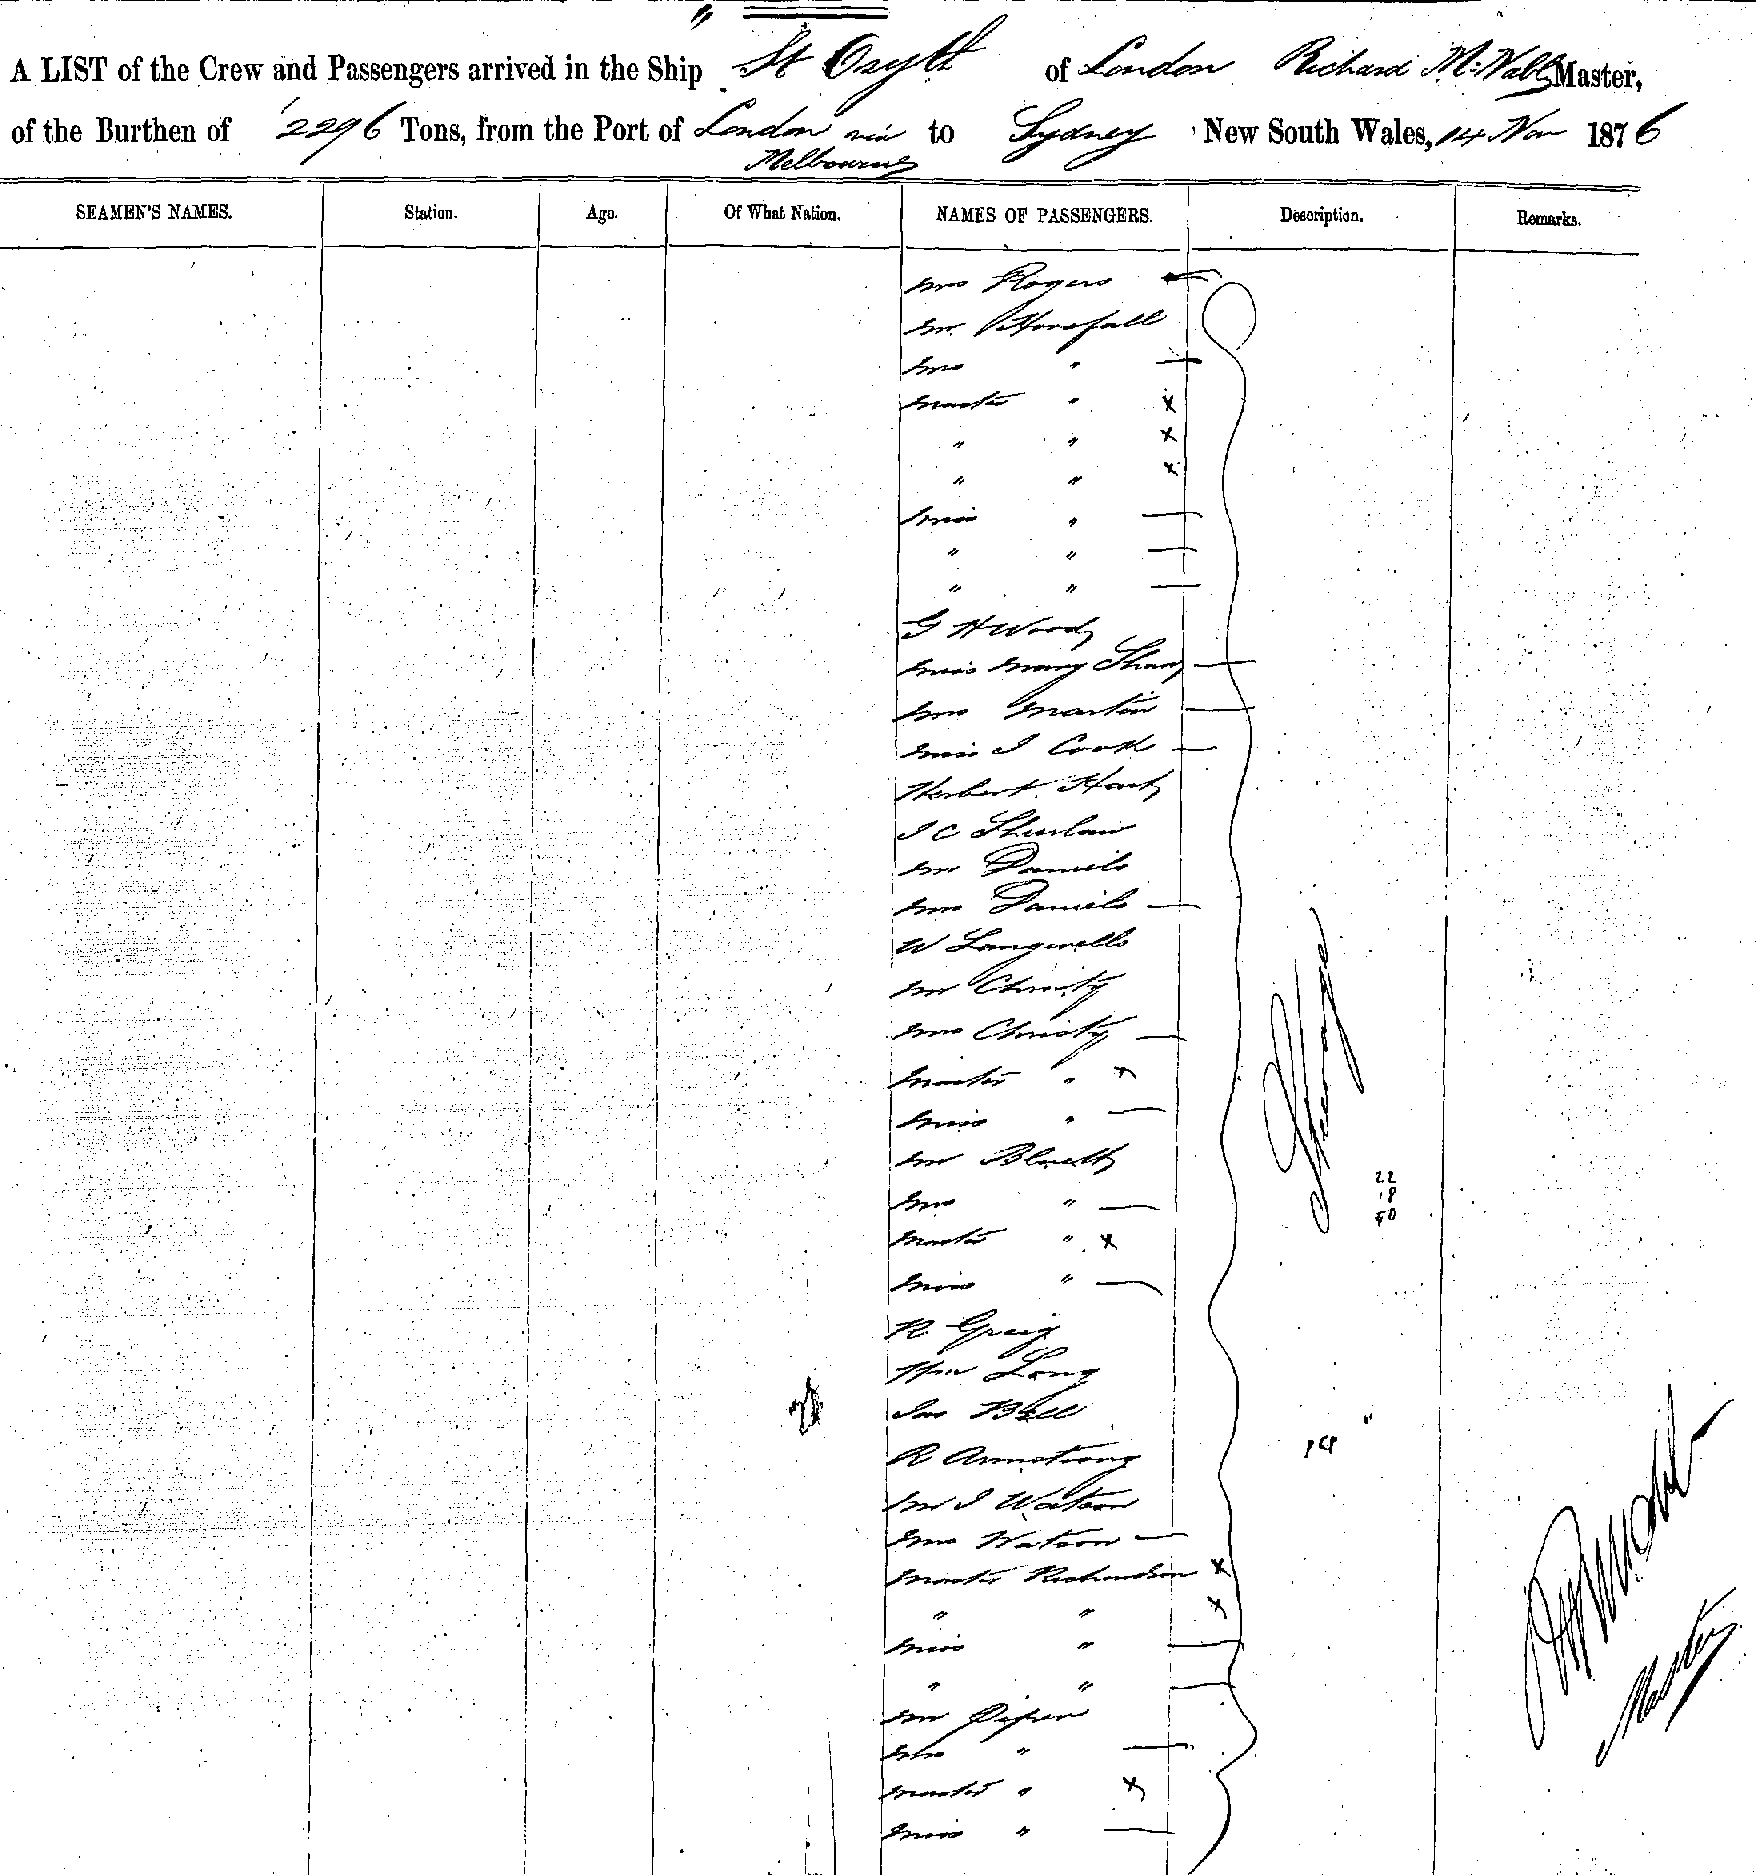 A LIST of the Crew and Passengers arrived in the Ship St Osyth of London Richard McNabb Master,
of the Burthen of 2296 Tons, from the Port of London via Melbourne to Sydney New South Wales, 14 Nov 1876
SEAMEN'S NAMES. Station. Age. Of What Nation. NAMES OF PASSENGERS. Description. Remarks.
Mrs Rogers —
Mr Horsfall
Mrs " —
Master " x
" " x
" " x
Miss " —
" " —
" " —
G H Wood
Miss Mary Sharp —
Mrs Martin —
Miss J Cook —
Herbert Hart
J C
Mr Daniels
Mrs Daniels —
W
Mr Christy
Mrs Christy —
Master " x
Miss " —
Mr
Mrs " —
Master " x
Miss " —
R Greig
Wm Long
Jas Bell
R Armstrong
Mr J Watson
Mrs Watson —
Master Richardson x
" " x
Miss " —
" " —
Mr Piper
Mrs " —
Master " x
Miss " —
Steerage
22
18
40
Master